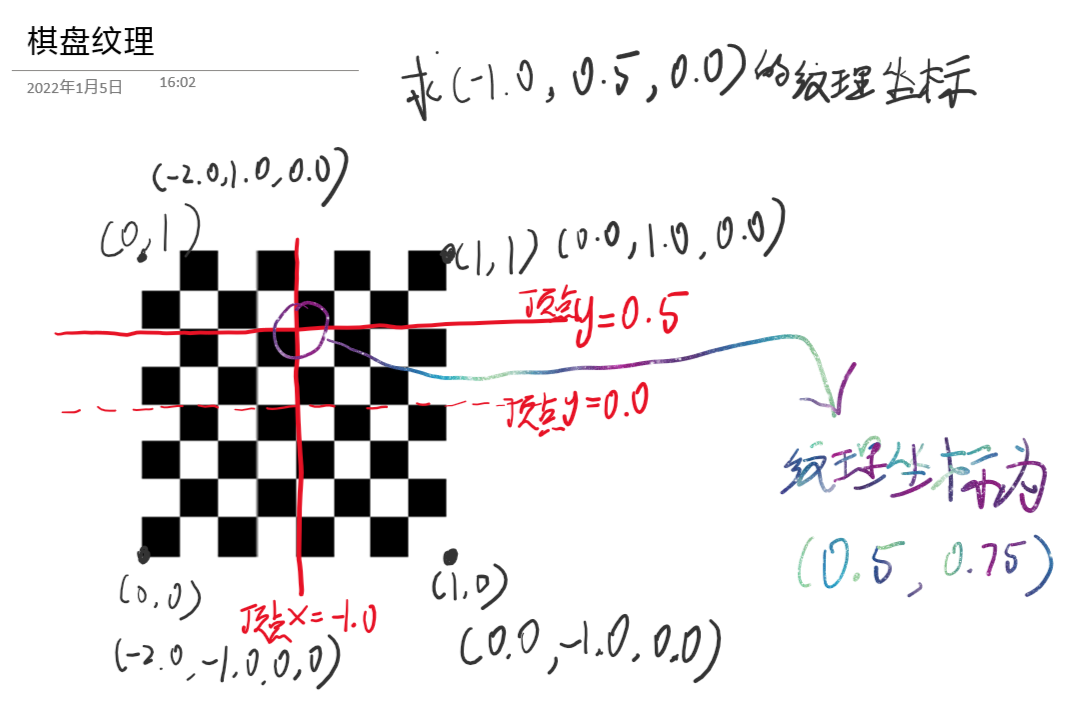 棋盘纹理
2022年1月5日 16:02
求(-1.0, 0.5, 0.0)的纹理坐标
(-2.0,1.0,0.0)
(0,1)
(1,1) (0.0,1.0,0.0)
顶点y=0.5
顶点y=0.0
纹理坐标为
(0.5, 0.75)
(0,0)
(1,0)
顶点x=-1.0
(-2.0,-1.0,0,0)
(0.0,-1.0,0.0)